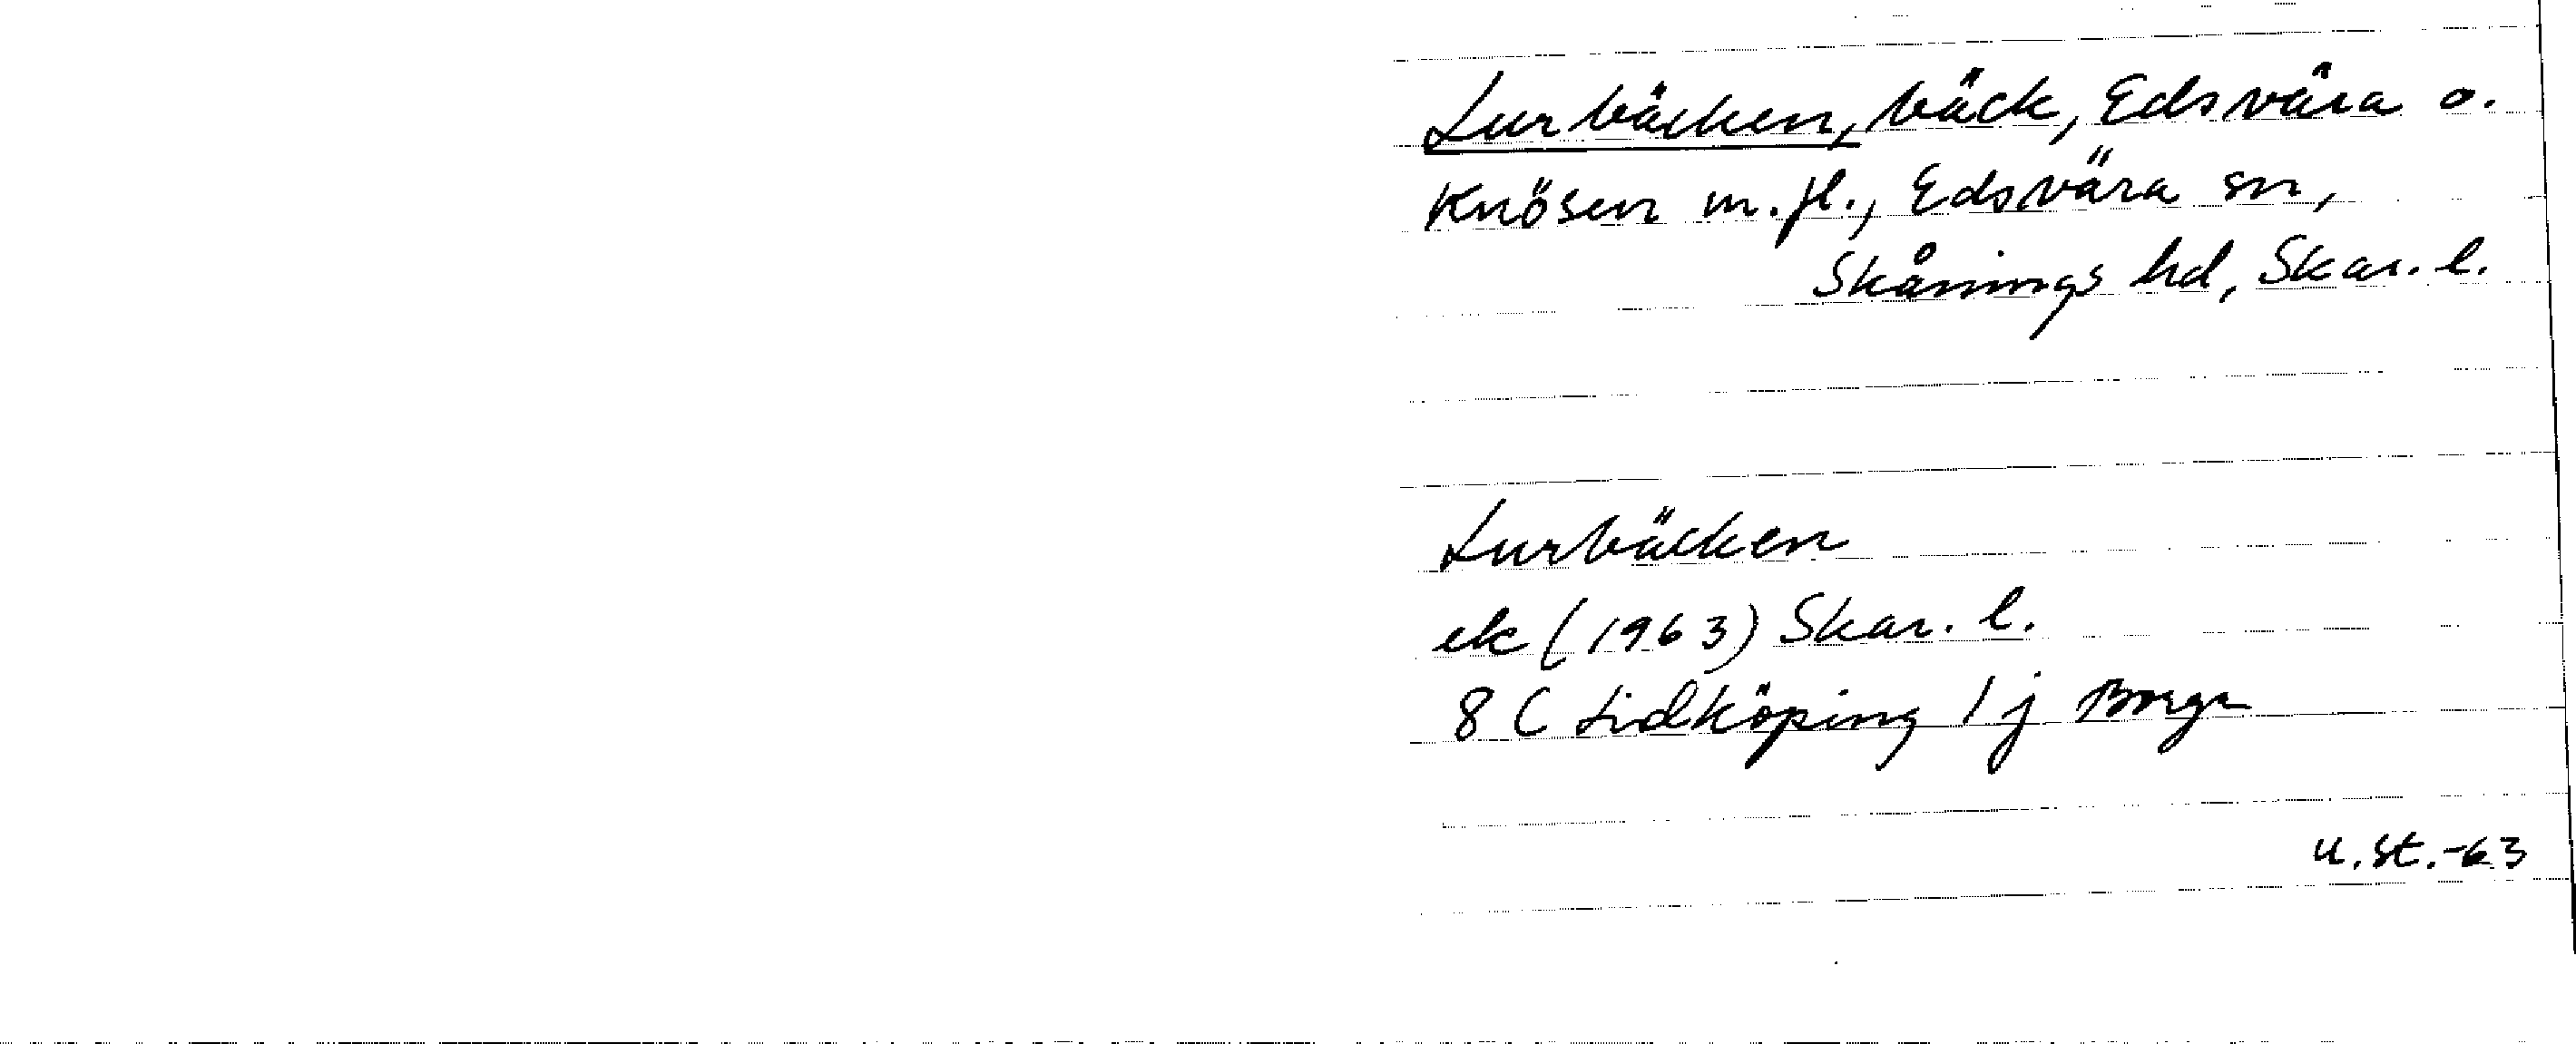 Lurbäcken, bäck, Edsvära o.
Knösen m.fl., Edsvära sn,
Skånings hd, Skar. l.
Lurbäcken
ek (1963) Skar. l.
8 C Lidköping 1 j
u.st.-63